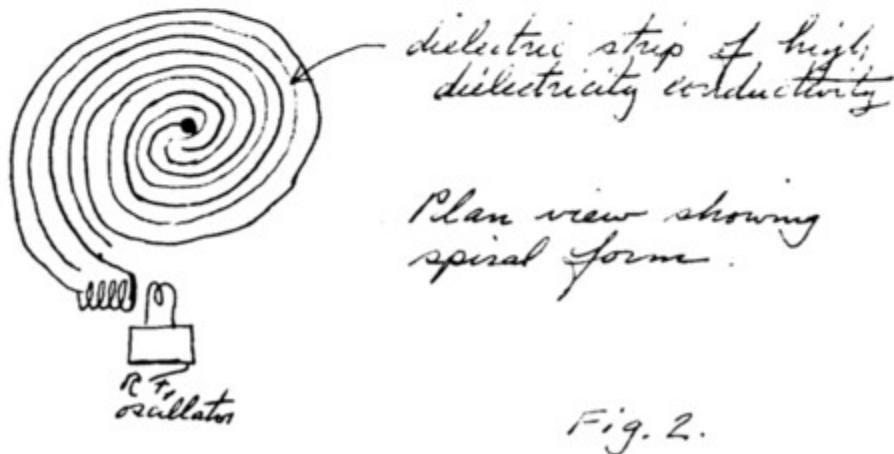 dielectric strip of high
dielectricity conductivity
Plan view showing
spiral form.
R.F.
oscillator
Fig. 2.